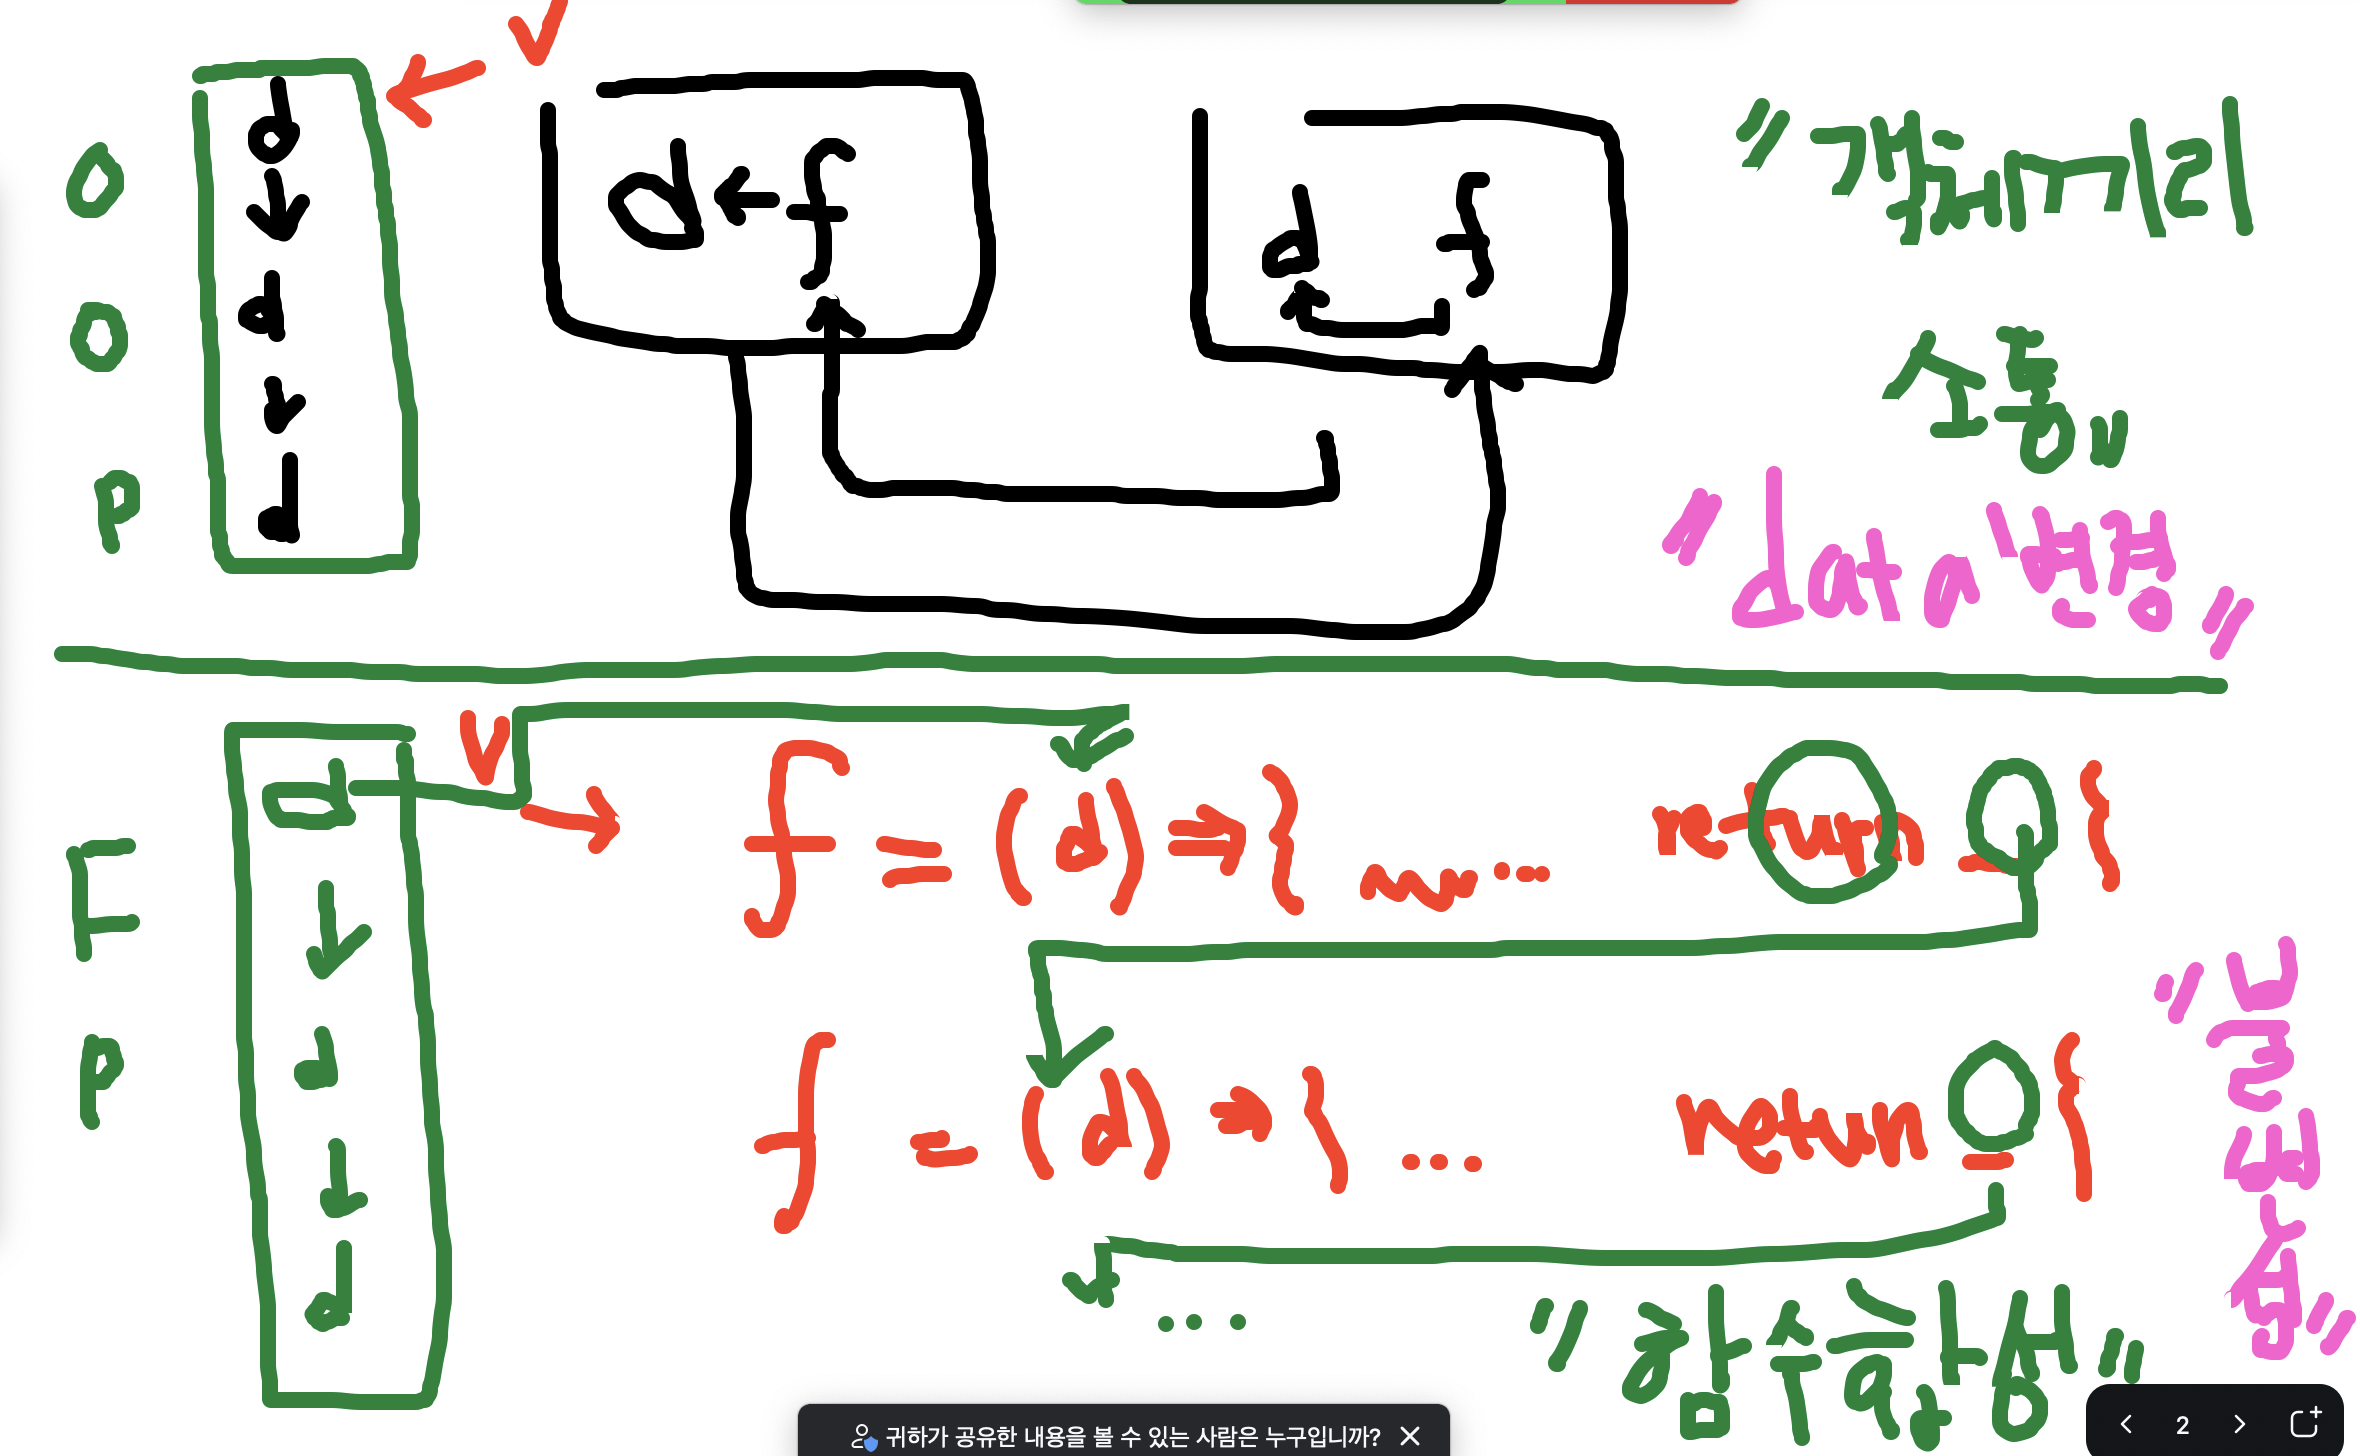 O
O
P
d
d
d
V
d ← f
d f
"객체끼리
소통"
"data 변경"
F
P
d
d
d
V
f = (d) ⇒ { ... return O }
f = (d) ⇒ { ... return O }
...
"함수 합성"
"불변성"
귀하가 공유한 내용을 볼 수 있는 사람은 누구입니까?
2